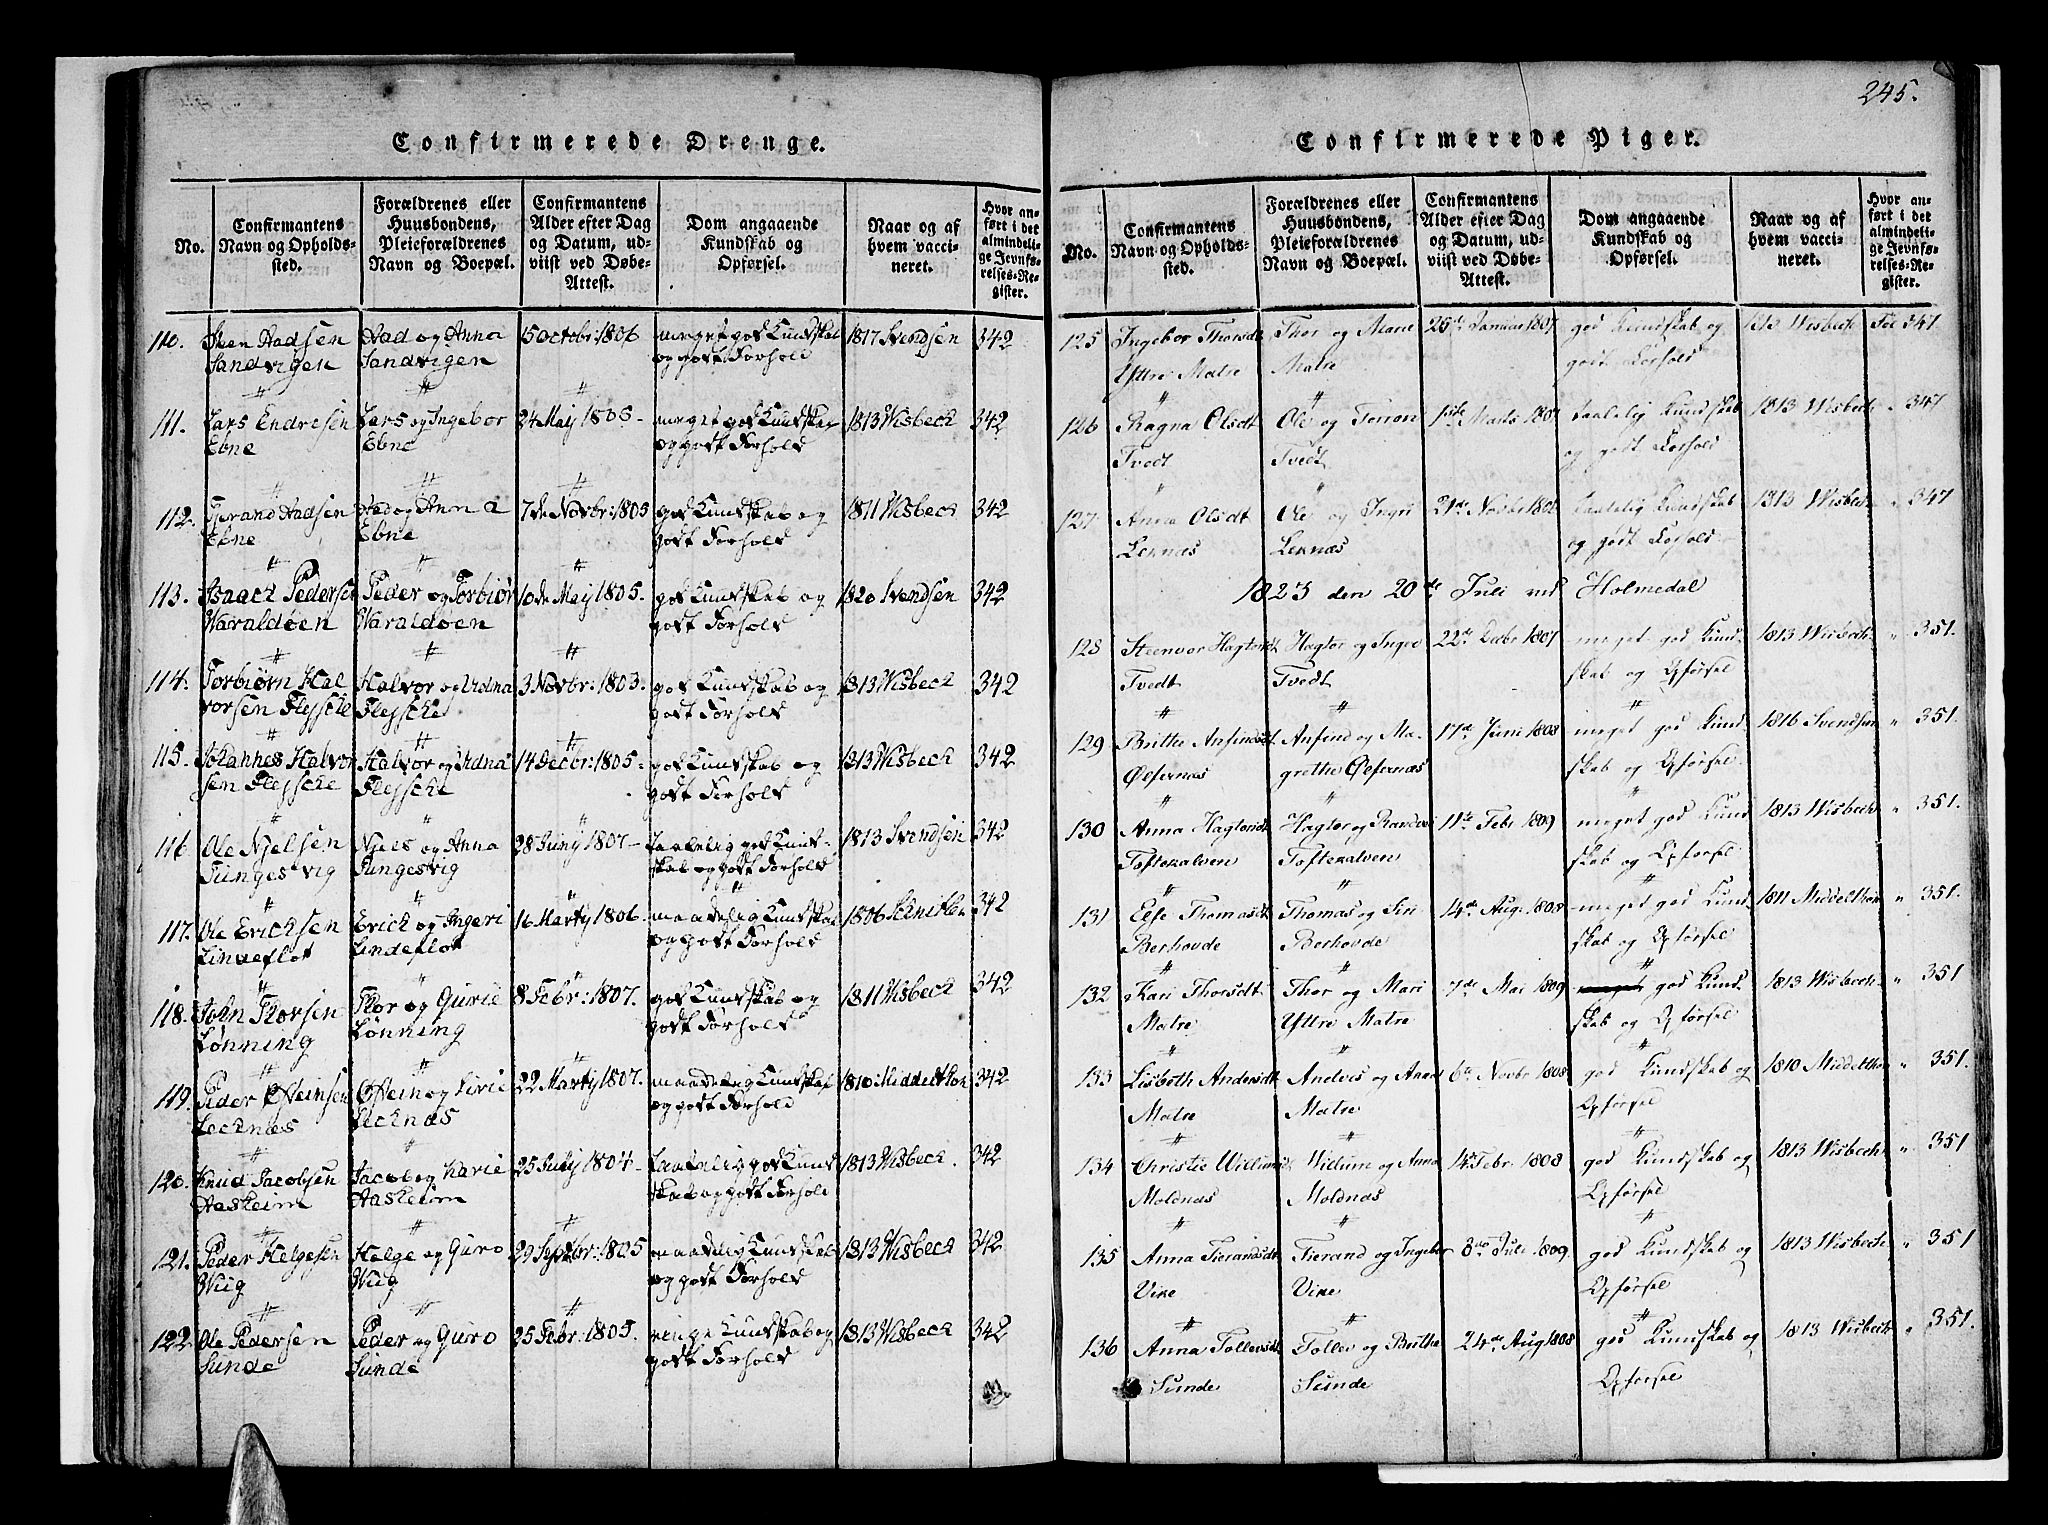 245.
Confirmerede Drenge.
No.
Confirmantens Navn og Opholdssted.
Forældrenes eller Huusbondens, Pleieforældrenes Navn og Boepæl.
Confirmantens Alder efter Dag og Datum, udviist ved Døbe-Attest.
Dom angaaende Kundskab og Opførsel.
Naar og af hvem vaccineret.
Hvor anført i det almindelige Jevnførelses-Register.
110. Aad og Anna 5 Octobr: 1806 meget god Kundskab 1817 Svendsen 342
Sandvigen Sandvigen og godt Forhold
111. Lars Endresen Lars og Ingebor 24 May 1806 - meget god Kundskab 1813 Wisbech 342
Ebne Ebne og godt Forhold
112. Tjerand Aadsen Aad og Anna 7de Novbr: 1805 god Kundskab og 1811 Wisbech 342
Ebne Ebne godt Forhold
113. Isaach Pedersen Peder og Torbiør 10de May 1805. god Kundskab og 1820 Svendsen 342
Haraldøen Haraldøen godt Forhold
114. Torbiørn Hal Halvor og Udna 3 Novbr: 1803. god Kundskab og 1813 Wisbech 342
vorsen Flejsche Flejsche godt Forhold
115. Johannes Halvor Halvor og Udna 14 Decbr: 1805. god Kundskab og 1813 Wisbech 342
sen Flejsche Flejsche godt Forhold
116 Ole Njelsen Njels og Anna 28 Juny 1807 - taalelig god Kund- 1813 Svendsen 342
Tungesvig Tungesvig skab og godt Forhold
117. Ole Erichsen Erich og Ingeri 16 Marty 1806. maadelig Kundskab 1806 342
Lindefløt Lindefløt og godt Forhold
118. John Thorsen Thor og Gurie 8 Febr: 1807. god Kundskab og 1811 Wisbech 342
Lønning Lønning godt Forhold
119. Peder Østeinsen Østein og Sirie 22 Marty 1807. maadelig Kundskab 1810 Middelthon 342
Lechnæs Lechnæs og godt Forhold
120. Knud Jacobsen Jacob og Karie 25 July 1804 - taalelig god Kund 1813 Wisbech. 342
Aasheim Aasheim skab og godt Forhold
121. Peder Helgesen Helge og Guro 29 Septbr: 1805 maadelig Kundskab 1813 Wisbech 342
Wiig Wiig og godt Forhold
122. Ole Pedersen Peder og Guro 25 Febr: 1805. ringe Kundskab og 1813 Wisbech 342
Sunde Sunde godt Forhold
Confirmerede Piger.
No.
Confirmantens Navn og Opholdssted.
Forældrenes eller Huusbondens, Pleieforældrenes Navn og Boepæl.
Confirmantens Alder efter Dag og Datum, udviist ved Døbe-Attest.
Dom angaaende Kundskab og Opførsel.
Naar og af hvem vaccineret.
Hvor anført i det almindelige Jevnførelses-Register.
125 Ingebor Thorsdt Thor og Marie 25de Januar 1807 god Kundskab og 1813 Wisbech Fol 347
Yttre Matre Matre godt Forhold
126 Ragna Olsdt Ole og 1ste Marts 1807 taalelig Kundskab 1813 Wisbech " 347
Tvedt Tvedt og godt Forhold
127 Anna Olsdt Ole og Ingri 21de Novbr taalelig Kundskab 1813 Wisbech " 347
Leknæs Leknæs og godt Forhold
1823 den 20de Juli ved Holmedal
128 Steenvor Hagtorsdt Hagtor og Inger 22de Decbr 1807 meget god Kund 1813 Wisbech " 351.
Tvedt Tvedt skab og Opførsel
129 Britte Anfindsdt Anfind og Ma- 17de Juni 1808 meget god Kund 1816 Svendsen " 351.
Øefernæs grethe Øefernæs skab og Opførsel
130 Anna Hagtorsdt Hagtor og 11te Febr 1809 meget god Kund 1813 Wisbech " 351.
Toftekalven Toftekalven skab og Opførsel
131 Else Thomasdt Thomas og Siri 14de Aug. 1808 meget god Kund 1811 Middelthon " 351.
Berhovde Berhovde skab og Opførsel
132 Kari Thorsdt Thor og Mari 7de Mai 1809 god Kund 1813 Wisbech " 351
Matre Yttre Matre skab og Opførsel
133 Lisbeth Andersdt Anders og Anna 6te Novbr 1808 god Kundskab og 1810 Middelthon " 351.
Matre Matre Opførsel
134 Christie Willumsd Willum og Anna 14de Febr. 1808 god Kundskab og 1813 Wisbech " 351
Moldnæs Moldnæs Opførsel
135 Anna Tierandsdt Tierand og Ingebor 8de Juli 1809. god Kundskab og 1813 Wisbech " 351
Vike Vike Opførsel
136 Anna Tollevsdt Tollev og Britha 24de Aug 1808 god Kundskab og 1813 Wisbech " 351.
Sunde Sunde Opførsel